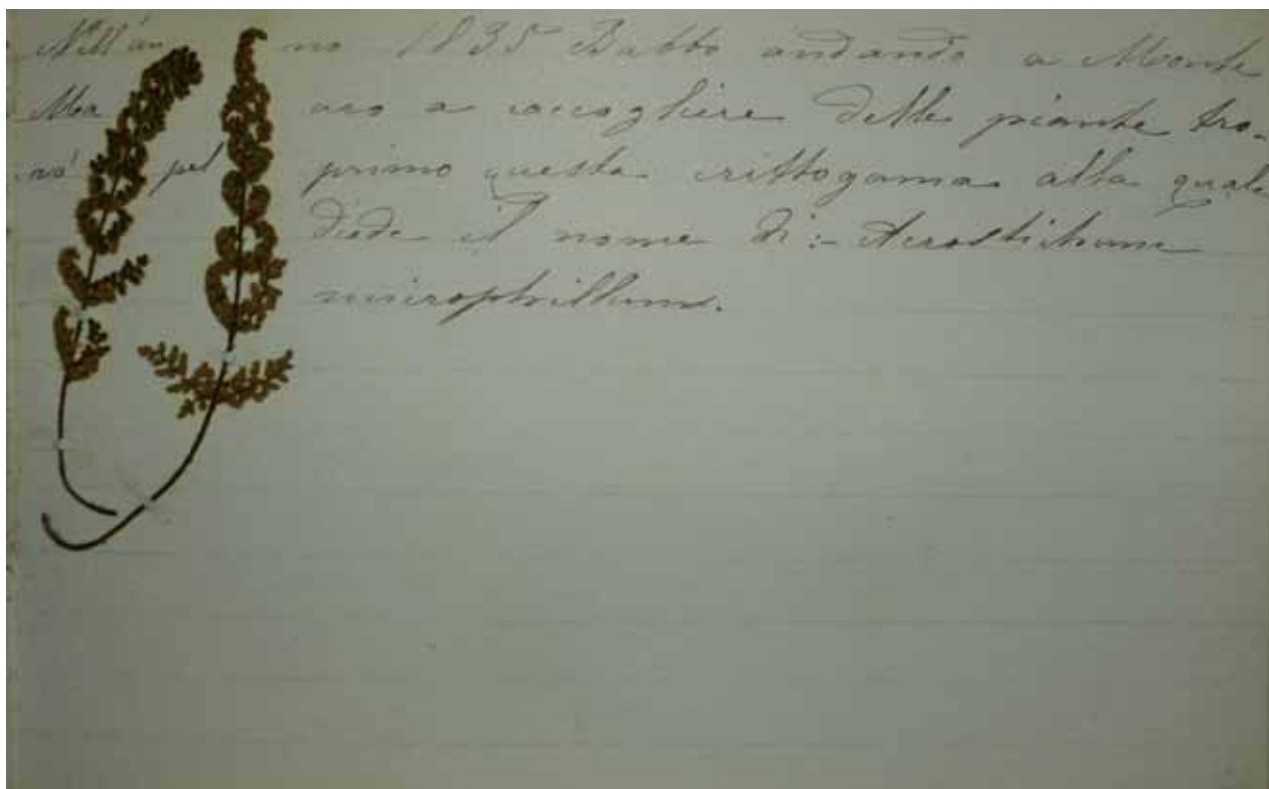 Nell'anno 1835 Babbo andando a Monte
Mauro a raccogliere delle piante tro-
vò pel primo questa crittogama alla quale
diede il nome di:- Acrostichum
microphillum.